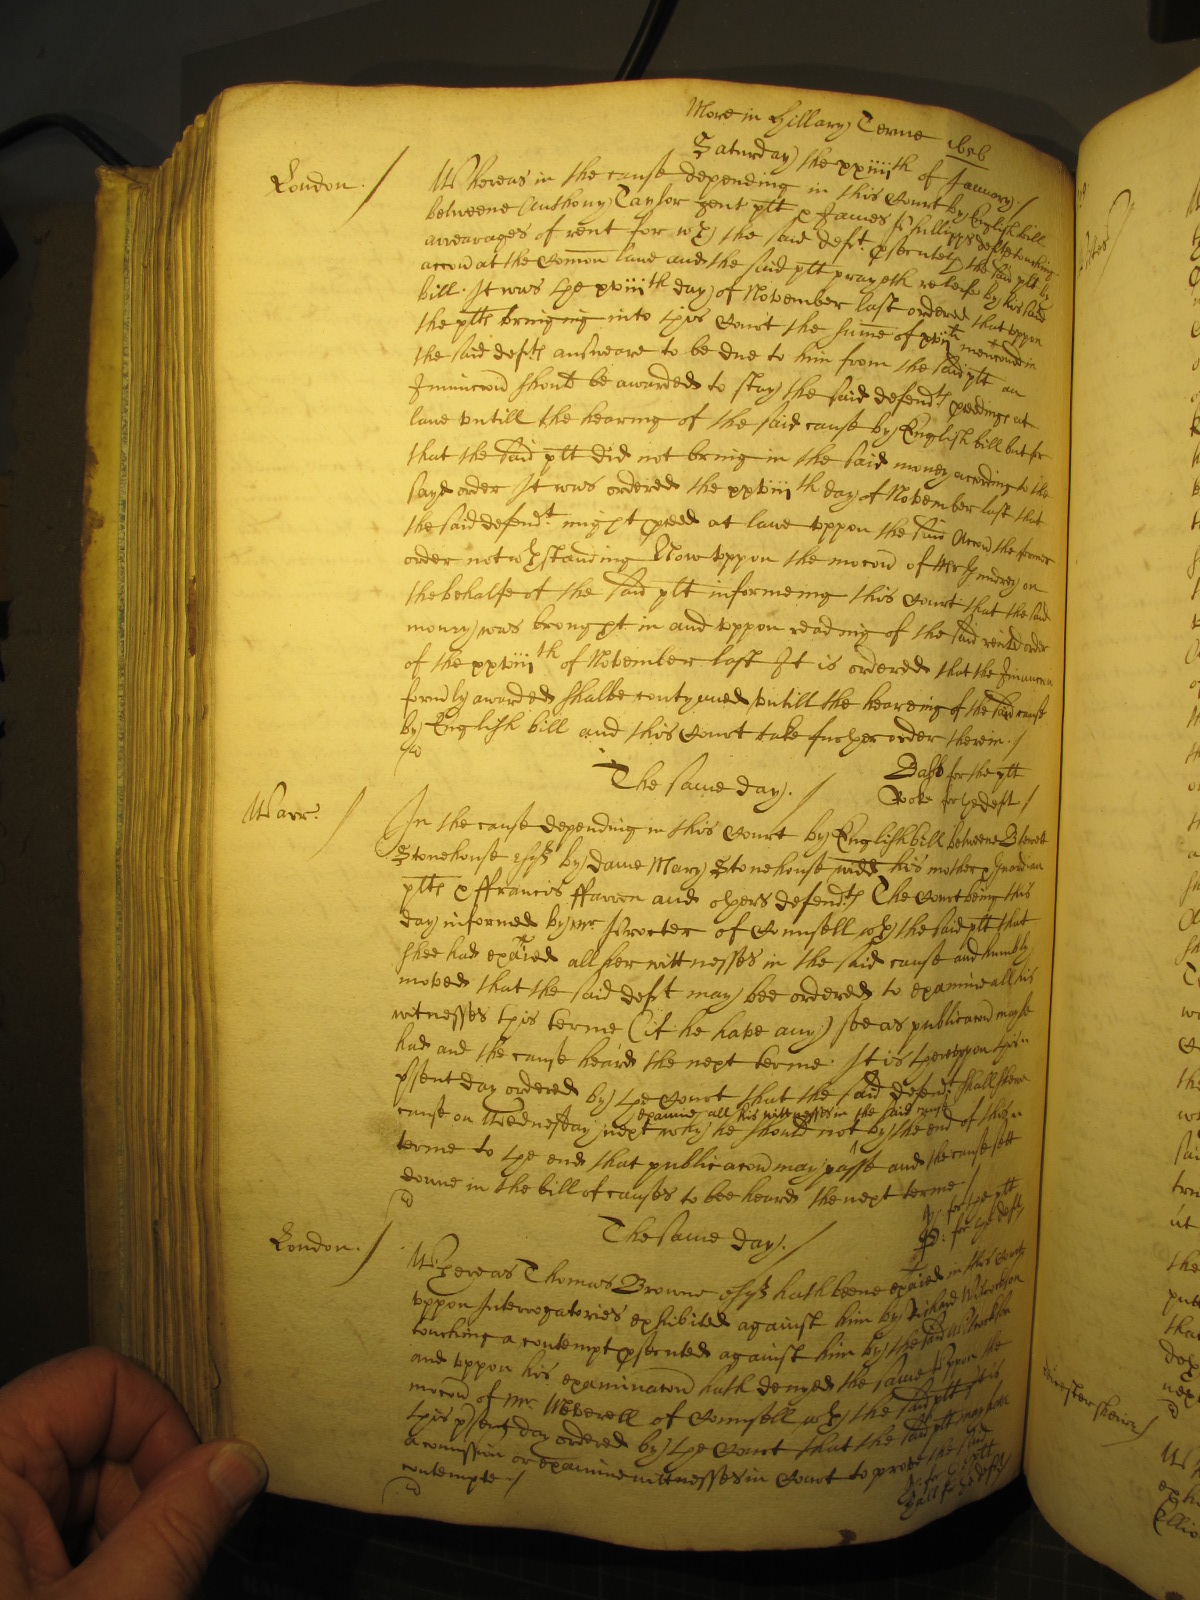 More in Hillary Terme 1656
Saturday the xxiiiith of January /
London. / Whereas in the cause depending in this Court by English bill
betweene Anthony Taylor gent plt & James Phillipps deft touching
arrearages of rent for wch the said deft. psecuteth the said plt by
accon at the Comon lawe and the said plt prayeth releife by his said
bill. It was the xviiith day of November last ordered that uppon
the plts bringing into this Court the sume of menconed in
the said defts answeare to be due to him from the said plt an
Iniunccon should be awarded to stay the said defendts pceedings at
lawe untill the hearing of the said cause by English bill but for
that the said plt did not bring in the said money according to the
sayd order It was ordered the xxviiith day of November last that
the said defendt. might pceed at lawe uppon the said Accon the former
order notwthstanding Now uppon the mocon of Mr on
the behalfe of the said plt informeing this Court that the said
money was brought in and uppon reading of the said recited order
of the xxviiith of November last It is ordered that the Iniunccon
formerly awarded shalbe contynued untill the heareing of the said cause
by English bill and this Court take further order therein. /
The same day. / for the plt
for the deft /
Warr: / In the cause depending in this Court by English bill betweene
Stonehouse esqr by Dame Mary Stonehouse widd his mother & Guardian
plts & ffrancis and others defendts The Court being this
day informed by Mr Procter of Counsell wth the said plt that
shee had exaied all her wittnesses in the said cause and humbly
moved that the said deft may bee ordered to examine all his
witnesses this terme (if he have any) soe as publicacon maybe
had and the cause heard the next terme. It is thereuppon this
psent day ordered by the Court that the said defent shall shew
cause on Wednesday next why he should not examine all his wittnesses in the said cause by the end of this
terme to the end that publicacon may passe and the cause sett
downe in the bill of causes to bee heard the next terme /
for the plt
The same day. / for the deft
London. / Whereas Thomas Browne esqr hath beene exaied in this Court
uppon Interrogatories exhibited against him by Richard Wilcockson
touching a contempt psecuted against him by the said Wilcockson
and uppon his examinacon hath denyed the same Uppon the
mocon of Mr Weverell of Counsell wth the said plt It is
this psent day ordered by the Court that the said plt may have
a comission or examine wittnesses in Court to prove the said
contempte / for the plt
for the deft